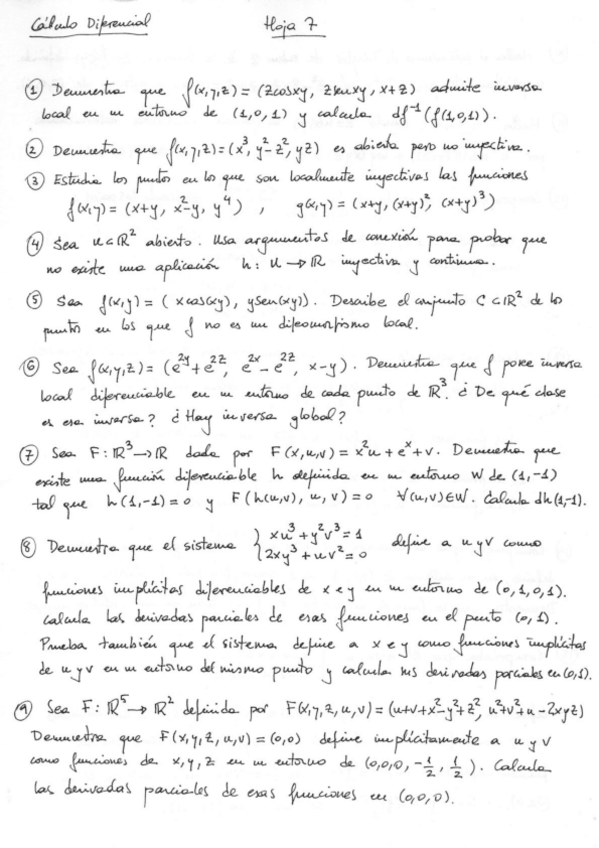 Cálculo Diferencial Hoja 7
① Demuestra que f(x,y,z) = (zcosxy, zsenxy, x+z) admite inversa
local en un entorno de (1,0,1) y calcula df⁻¹(f(1,0,1)).
② Demuestra que f(x,y,z) = (x³, y²-z², yz) es abierta pero no inyectiva.
③ Estudia los puntos en los que son localmente inyectivas las funciones
f(x,y) = (x+y, x²-y, y⁴) , g(x,y) = (x+y, (x+y)², (x+y)³)
④ Sea U⊂ℝ² abierto. Usa argumentos de conexión para probar que
no existe una aplicación h: U → ℝ inyectiva y continua.
⑤ Sea f(x,y) = ( xcos(xy), ysen(xy)). Describe el conjunto C⊂ℝ² de los
puntos en los que f no es un difeomorfismo local.
⑥ Sea f(x,y,z) = (e^{2y}+e^{2z}, e^{2x}-e^{2z}, x-y). Demuestra que f posee inversa
local diferenciable en un entorno de cada punto de ℝ³. ¿De qué clase
es esa inversa? ¿Hay inversa global?
⑦ Sea F: ℝ³→ℝ dada por F(x,u,v) = x²u + eˣ + v. Demuestra que
existe una función diferenciable h definida en un entorno W de (1,-1)
tal que h(1,-1) = 0 y F(h(u,v), u, v) = 0 ∀(u,v)∈W. Calcula dh(1,-1).
⑧ Demuestra que el sistema { xu³+y²v³=1
2xy³+uv²=0 define a u y v como
funciones implícitas diferenciables de x e y en un entorno de (0,1,0,1).
Calcula las derivadas parciales de esas funciones en el punto (0,1).
Prueba también que el sistema define a x e y como funciones implícitas
de u y v en un entorno del mismo punto y calcula sus derivadas parciales en (0,1).
⑨ Sea F: ℝ⁵→ℝ² definida por F(x,y,z,u,v) = (u+v+x²-y²+z², u²+v²+u-2xyz)
Demuestra que F(x,y,z,u,v) = (0,0) define implícitamente a u y v
como funciones de x,y,z en un entorno de (0,0,0,-1/2, 1/2). Calcula
las derivadas parciales de esas funciones en (0,0,0).